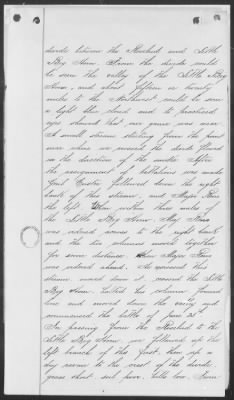 divide between the Rosebud and Little
Big Horn. From the divide could
be seen the valley of the Little Big
Horn, and about fifteen or twenty
miles to the Northwest could be seen
a light blue cloud and to practiced
eyes showed that our game was near.
A small stream starting from the point
near where we crossed the divide flowed
in the direction of the smoke. After
the assignment of battalions was made
Genl Custer followed down the right
bank of this stream, and Major Reno
the left. When within three miles of
the Little Big Horn Maj Reno
was ordered across to the right bank
and the two columns moved together
for some distance when Major Reno
was ordered ahead. He recrossed this
stream moved down it crossed the Little
Big Horn halted his column formed
line and moved down the valley and
commenced the battle of June 25th
In passing from the Rosebud to the
Little Big Horn we followed up the
left branch of the first, then up a
dry ravine to the crest of the divide,
grass short soil poor, hills low. From